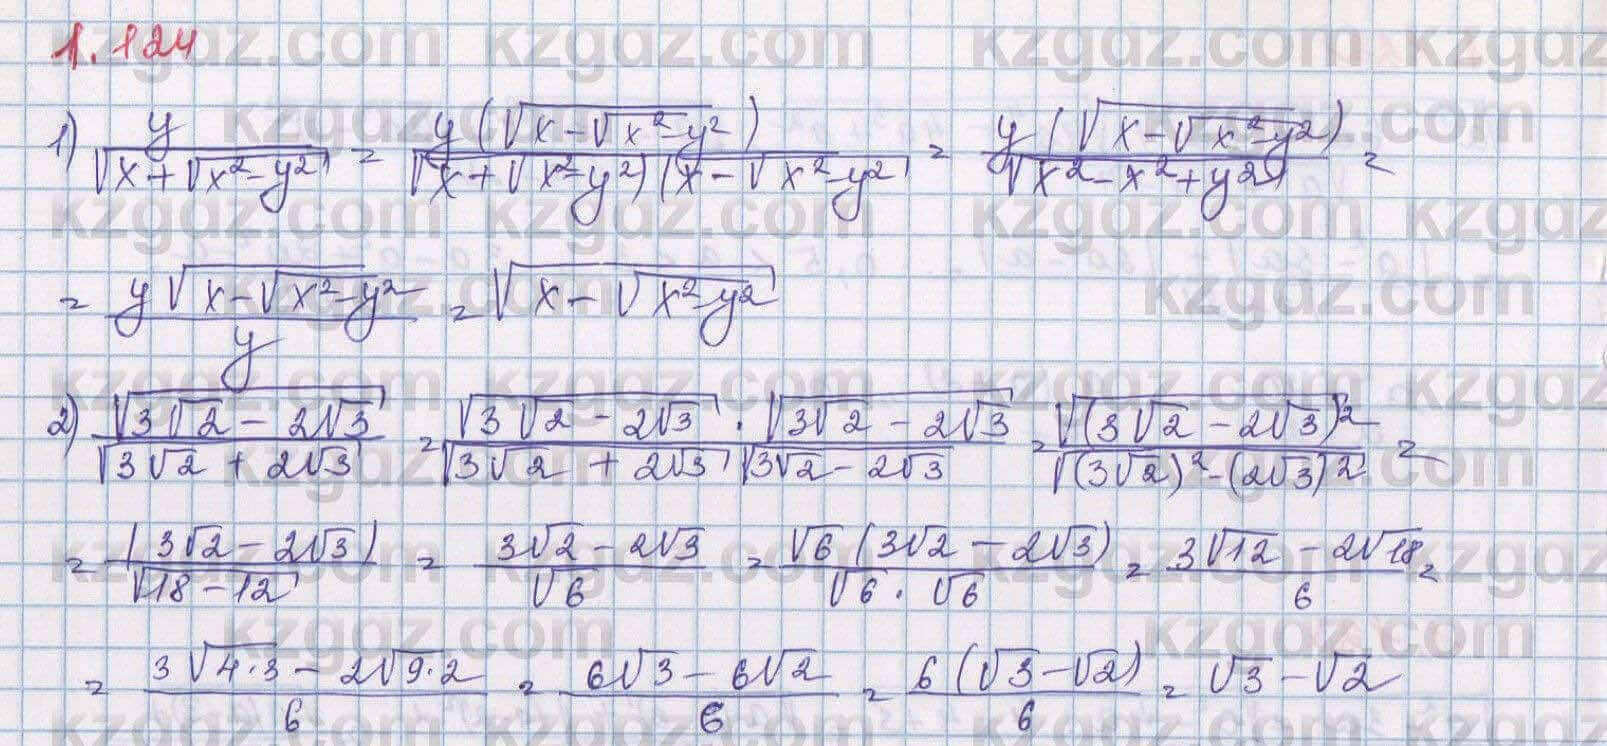 1.124
1) y/√(x+√(x²-y²)) = y(√(x-√(x²-y²)))/√((x+√(x²-y²))(x-√(x²-y²))) = y(√(x-√(x²-y²)))/√(x²-x²+y²) =
= y√(x-√(x²-y²))/y = √(x-√(x²-y²))
2) √(3√2-2√3)/√(3√2+2√3) = √(3√2-2√3)·√(3√2-2√3)/√(3√2+2√3)√(3√2-2√3) = √(3√2-2√3)²/√((3√2)²-(2√3)²) =
= |3√2-2√3|/√(18-12) = (3√2-2√3)/√6 = √6(3√2-2√3)/(√6·√6) = (3√12-2√18)/6 =
= (3√(4·3)-2√(9·2))/6 = (6√3-6√2)/6 = 6(√3-√2)/6 = √3-√2
kzgdz.com